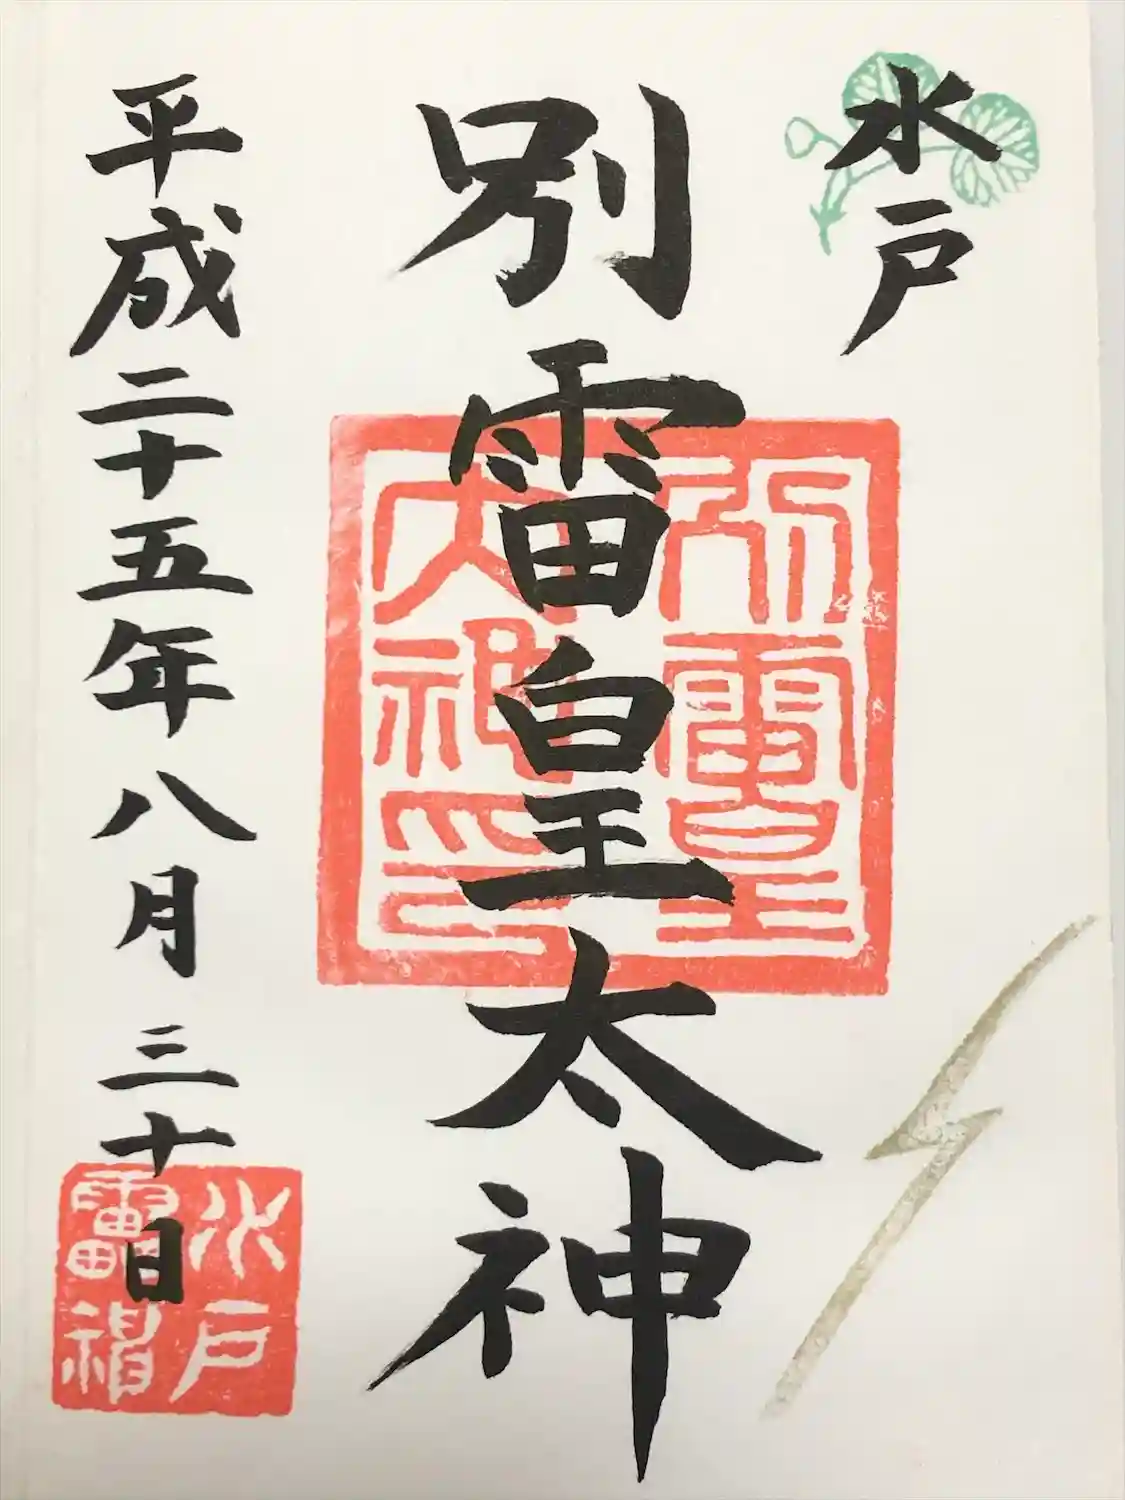 水戸
別雷皇太神
別雷皇
大神印
平成二十五年八月三十日
水戸
雷神